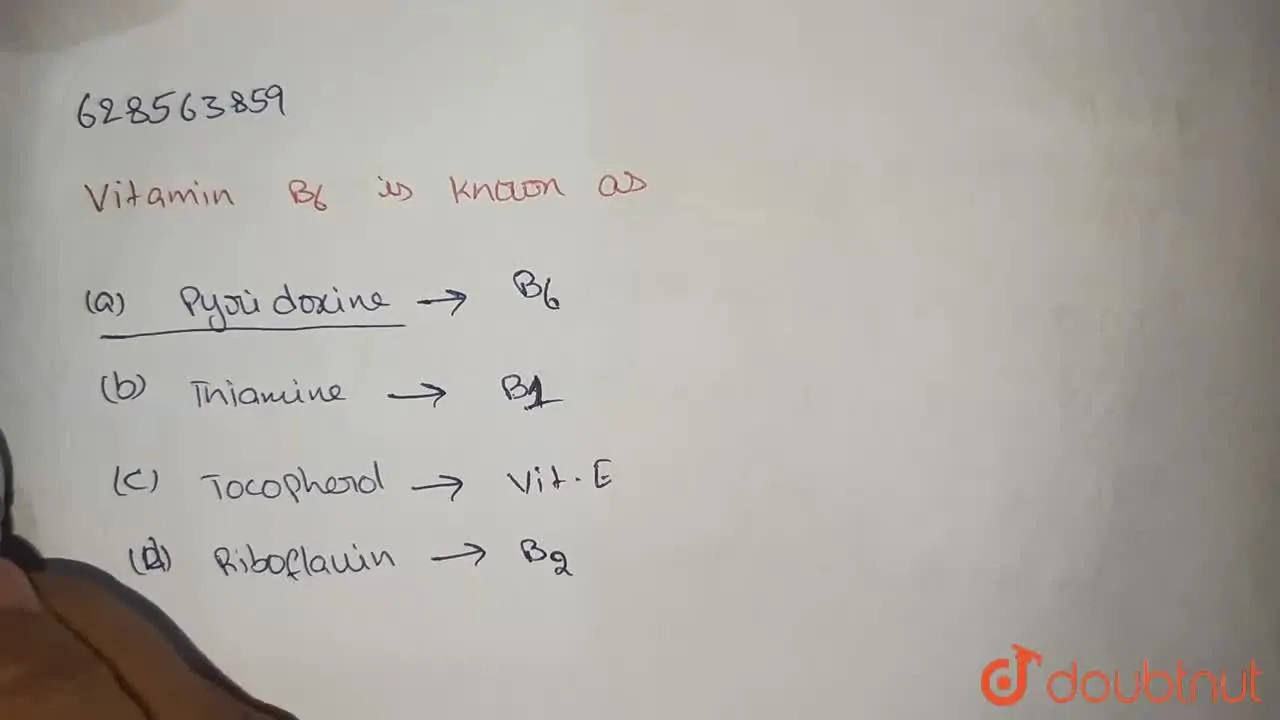 628563859
Vitamin B6 is known as
(a) Pyridoxine → B6
(b) Thiamine → B1
(c) Tocopherol → Vit. E
(d) Riboflavin → B2
doubtnut